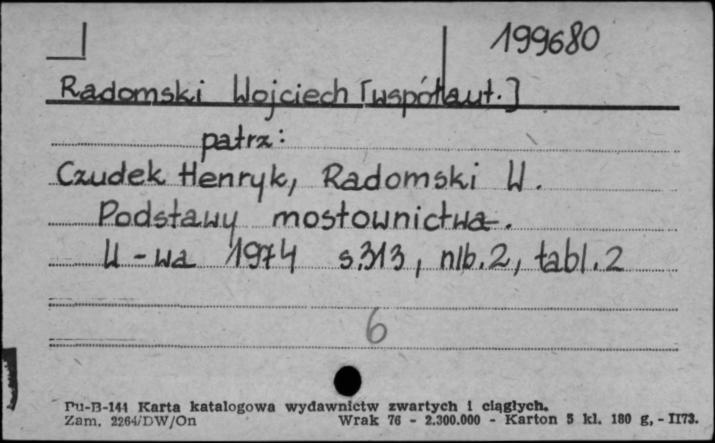 199680
Radomski Wojciech [współaut.]
patrz:
Czudek Henryk, Radomski W.
Podstawy mostownictwa.
W-wa 1974 s.313, nlb.2, tabl.2
6
Pu-B-144 Karta katalogowa wydawnictw zwartych i ciągłych.
Zam. 2264/DW/On Wrak 76 - 2.300.000 - Karton 5 kl. 180 g, - II73.